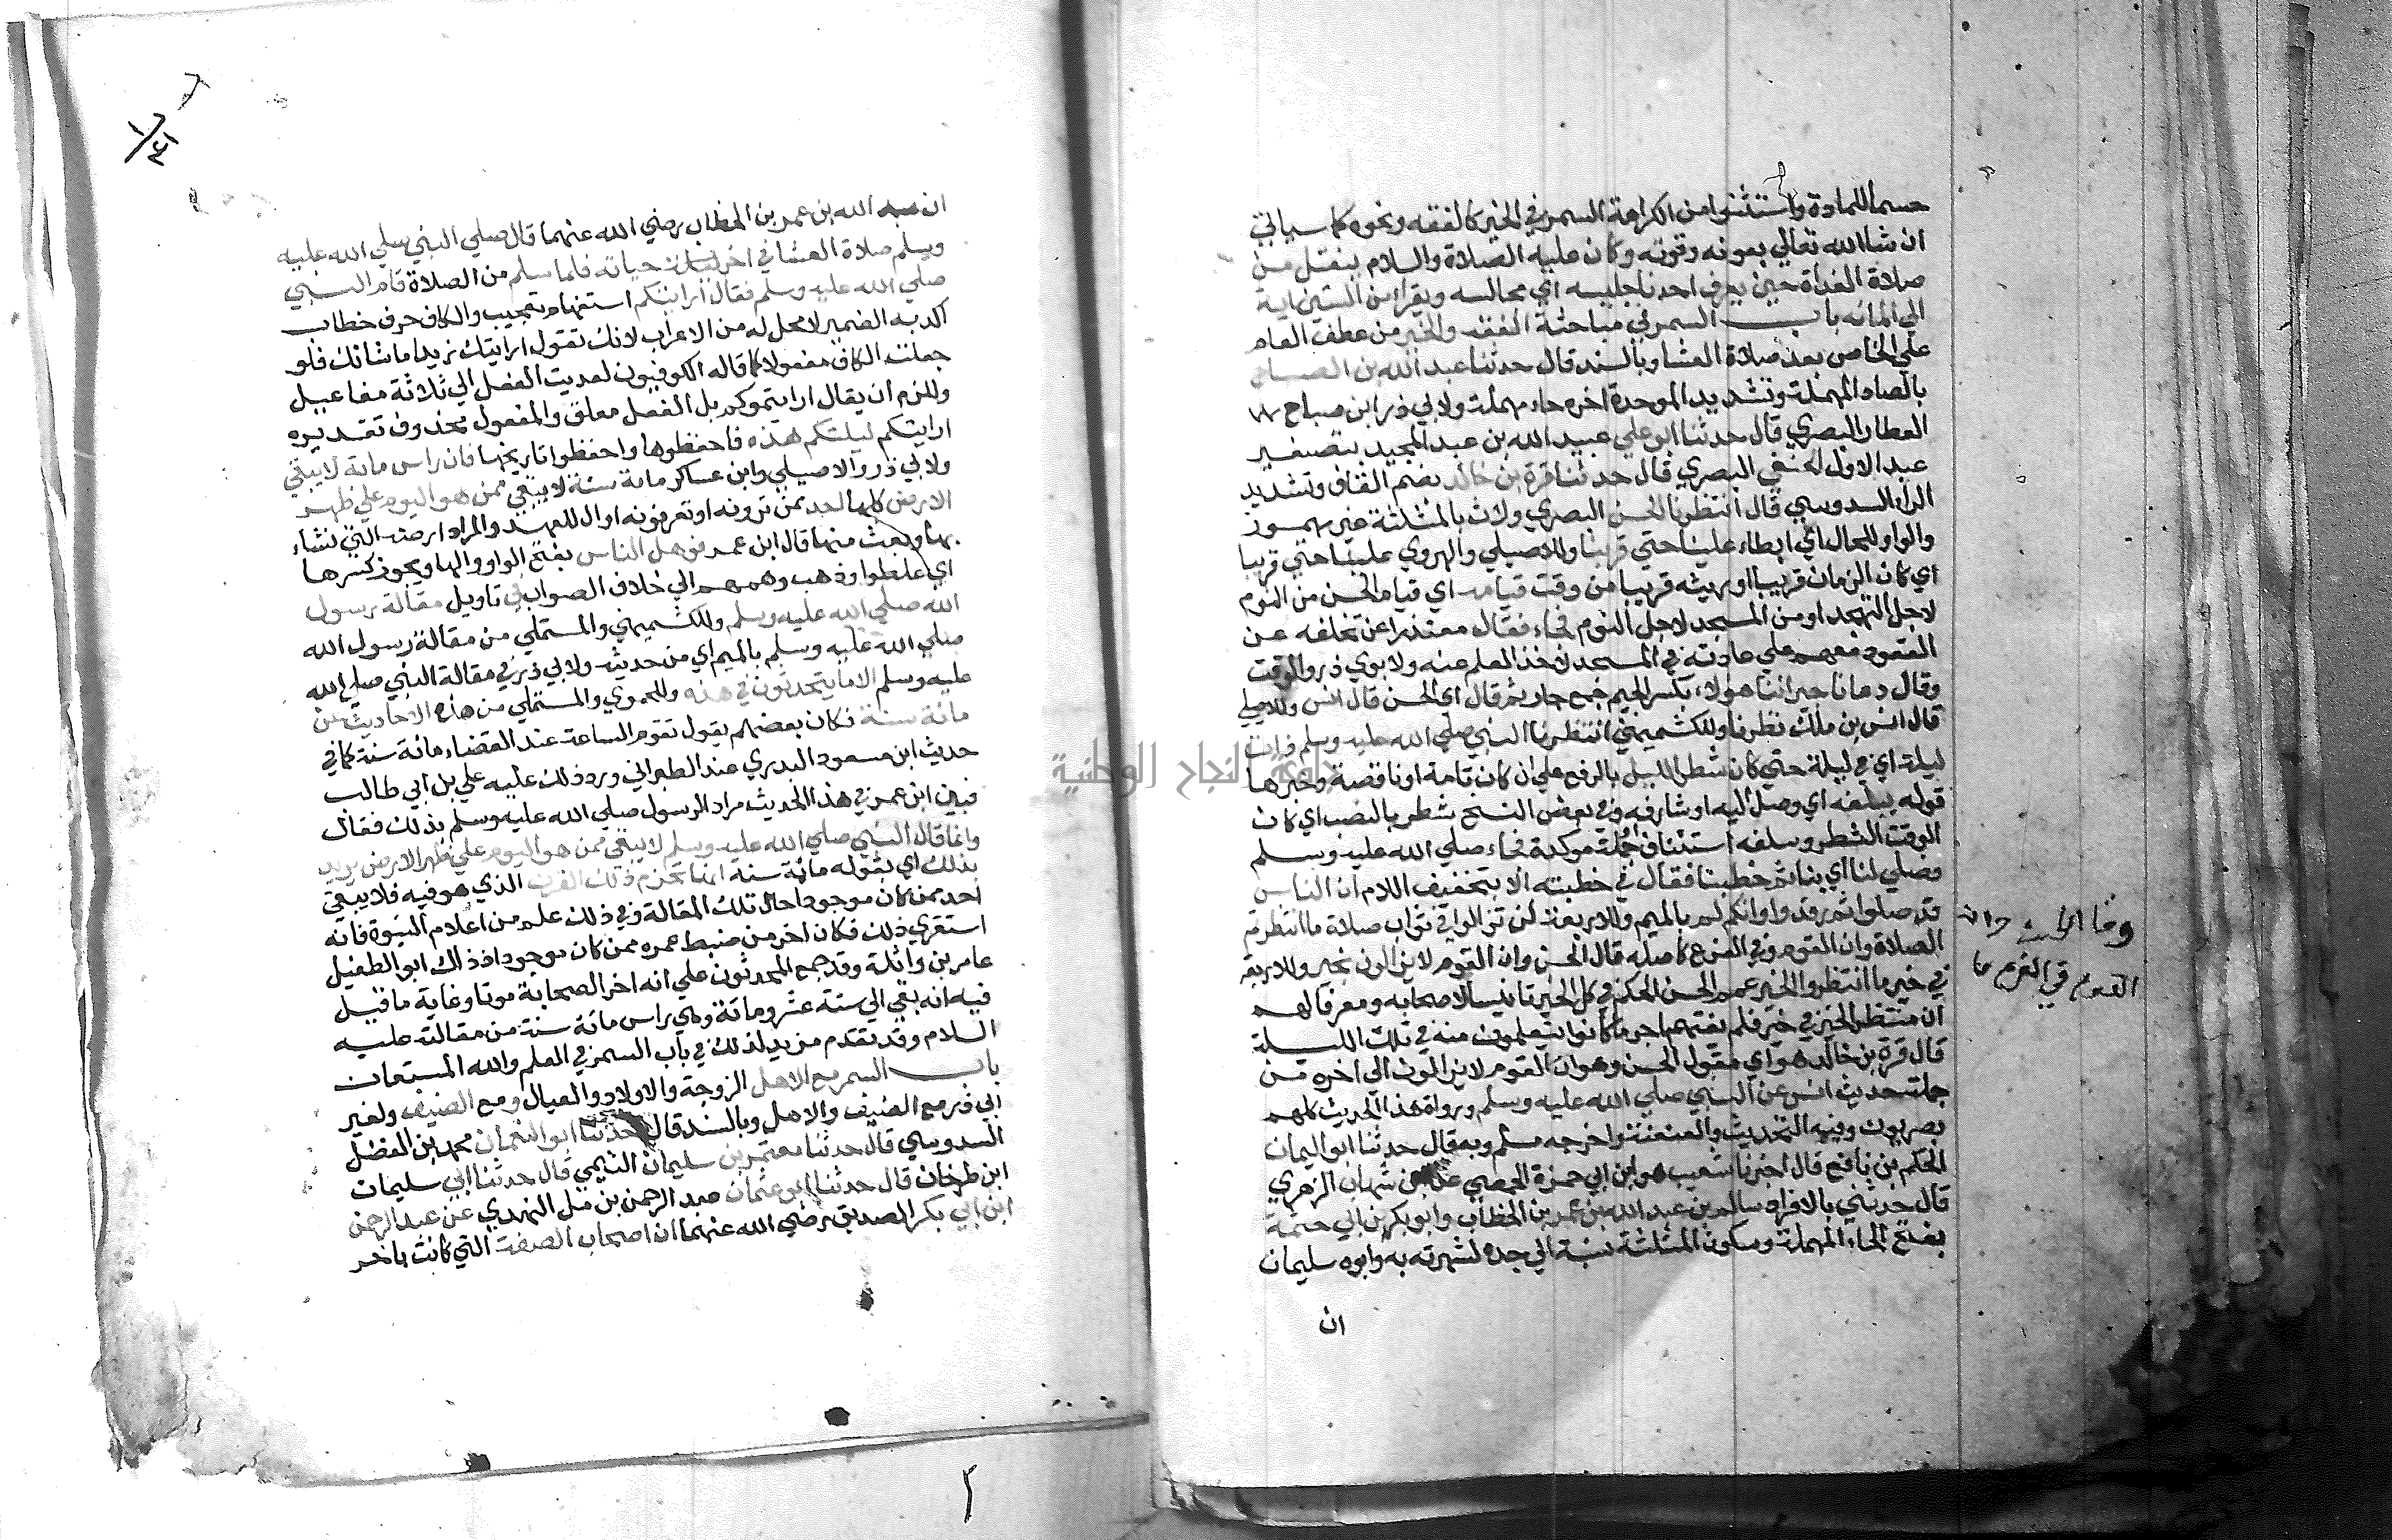 حسما للمادة واستثنوا من الكراهة السمر في الخير كالفقه ونحوه كما سياتي
ان شا الله تعالي بعونه وقوته وكان عليه الصلاة والسلام ينفتل من
صلاة الغداة حين يعرف احدنا جليسه اي مجالسه ويقرا من الستين اية
الي المائه باب السمر في مباحثة الفقه والخير من عطف العام
علي الخاص بعد صلاة العشا وبالسند قال حدثنا عبد الله بن الصباح
بالصاد المهملة وتشديد الموحدة اخره حاء مهملة ولابي ذر ابن صباح
العطار البصري قال حدثنا ابو علي عبيد الله بن عبد المجيد بتصغير
عبد الاول الحنفي البصري قال حدثنا قرة بن خالد بضم القاف وتشديد
الراء السدوسي قال انتظرنا الحسن البصري وراث بالمثلثة غير مهموز
والواو للحال اي ابطاء علينا حتي قربنا وللاصيلي والهروي علينا حتي قريبا
اي كان الزمان قريبا او ريثه قريبا من وقت قيامه اي قيام الحسن من النوم
لاجل التهجد او من المسجد لاجل النوم فجاء فقال معتذرا عن تخلفه عن
القعود معهم علي عادته في المسجد لاخذ العلم عنه ولابوي ذر والوقت
وقال دعانا جيراننا هولاء بكسر الجيم جمع جار ثم قال اي الحسن قال انس وللاصيلي
قال انس بن ملك نظرنا وللكشميهني انتظرنا النبي صلي الله عليه وسلم ذات
ليلة اي في ليلة حتي كان شطر الليل بالرفع علي ان كان تامة او ناقصة وخبرها
قوله يبلغه اي وصل اليه او شارفه وفي بعض النسخ شطر بالنصب اي كان
الوقت الشطر ويبلغه استئناف جملة موكدة فجاء صلي الله عليه وسلم
وصلي لنا اي بنا ثم خطبنا فقال في خطبته الا بتخفيف اللام ان الناس
قد صلوا ثم رقدوا وانكم لم بالميم وللاربعة لن تزالوا في ثواب صلاة ما انتظرتم
الصلاة وان القوم وفي الفرع كاصله قال الحسن وان القوم لا يزالون بخير وللاربعة
في خير ما انتظروا الخير عمم الحسن الحكم في كل الخير تانيسا لاصحابه ومعرفا لهم
ان منتظر الخير في خير فلم يفتهم اجر ما كانوا يتعلمون منه في تلك الليلة
قال قرة بن خالد هو اي مقول الحسن وهو ان القوم لا يزالون الي اخره من
جملة حديث انس عن النبي صلي الله عليه وسلم ورواة هذا الحديث كلهم
بصريون وفيه التحديث والعنعنة واخرجه مسلم وبه قال حدثنا ابو اليمان
الحكم بن نافع قال اخبرنا شعيب هو ابن ابي حمزة الحمصي عن ابن شهاب الزهري
قال حدثني بالافراد سالم بن عبد الله بن عمر بن الخطاب وابو بكر بن ابي حثمة
بفتح الحاء المهملة وسكون المثلثة نسبة الي جده لشهرته به وابوه سليمان
ان
القوم في الفرع
ان عبد الله بن عمر بن الخطاب رضي الله عنهما قال صلي النبي صلي الله عليه
وسلم صلاة العشا في اخر حياته فلما سلم من الصلاة قام النبي
صلي الله عليه وسلم فقال ارايتكم استفهام تعجيب والكاف حرف خطاب
اكد به الضمير لا محل له من الاعراب لانك تقول ارايتك زيدا ما شانك فلو
جعلت الكاف مفعولا كما قاله الكوفيون لعديت الفعل الي ثلاثة مفاعيل
وللزم ان يقال ارايتموكم بل الفعل معلق والمفعول محذوف تقديره
ارايتكم ليلتكم هذه فاحفظوها واحفظوا تاريخها فان راس ماية لا يبقي
ولابي ذر والاصيلي وابن عساكر ماية سنة لا يبقي ممن هو اليوم علي ظهر
الارض كلها احد ممن ترونه او تعرفونه او ال للعهد والمراد ارضه التي نشاء
بها وبعث منها قال ابن عمر فوهل الناس بفتح الواو والها ويجوز كسرها
اي غلطوا وذهب وهمهم الي خلاف الصواب في تاويل مقالة رسول
الله صلي الله عليه وسلم وللكشميهني والمستملي من مقالة رسول الله
صلي الله عليه وسلم بالميم اي من حديثه ولابي ذر في مقالة النبي صلي الله
عليه وسلم الا ما يتحدثون في هذه وللحموي والمستملي من هذه الاحاديث عن
مائة سنة فكان بعضهم يقول تقوم الساعة عند انقضاء مائة سنة كما في
حديث ابن مسعود البدري عند الطبراني ورد ذلك عليه علي بن ابي طالب
فبين ابن عمر في هذا الحديث مراد الرسول صلي الله عليه وسلم بذلك فقال
وانما قال النبي صلي الله عليه وسلم لا يبقي ممن هو اليوم علي ظهر الارض يريد
بذلك اي بقوله مائة سنة انها تخرم ذلك القرن الذي هو فيه فلا يبقي
احد ممن كان موجودا حال تلك المقالة وفي ذلك علم من اعلام النبوة فانه
استقري ذلك فكان اخر من ضبط عمره ممن كان موجودا اذ ذاك ابو الطفيل
عامر بن واثلة وقد جمع المحدثون علي انه اخر الصحابة موتا وغاية ما قيل
فيه انه بقي الي ستة عشر ومائة وهي راس مائة سنة من مقالته عليه
السلام وقد تقدم مزيد لذلك في باب السمر في العلم والله المستعان
باب السمر مع الاهل الزوجة والاولاد والعيال ومع الضيف ولغير
ابي ذر مع الضيف والاهل وبالسند قال حدثنا ابو النعمان محمد بن الفضل
السدوسي قال حدثنا معتمر بن سليمان التيمي قال حدثنا ابي سليمان
ابن طرخان قال حدثنا ابو عثمان عبد الرحمن بن مل النهدي عن عبد الرحمن
ابن ابي بكر الصديق رضي الله عنهما ان اصحاب الصفة التي كانت باخر
جامعة النجاح الوطنية